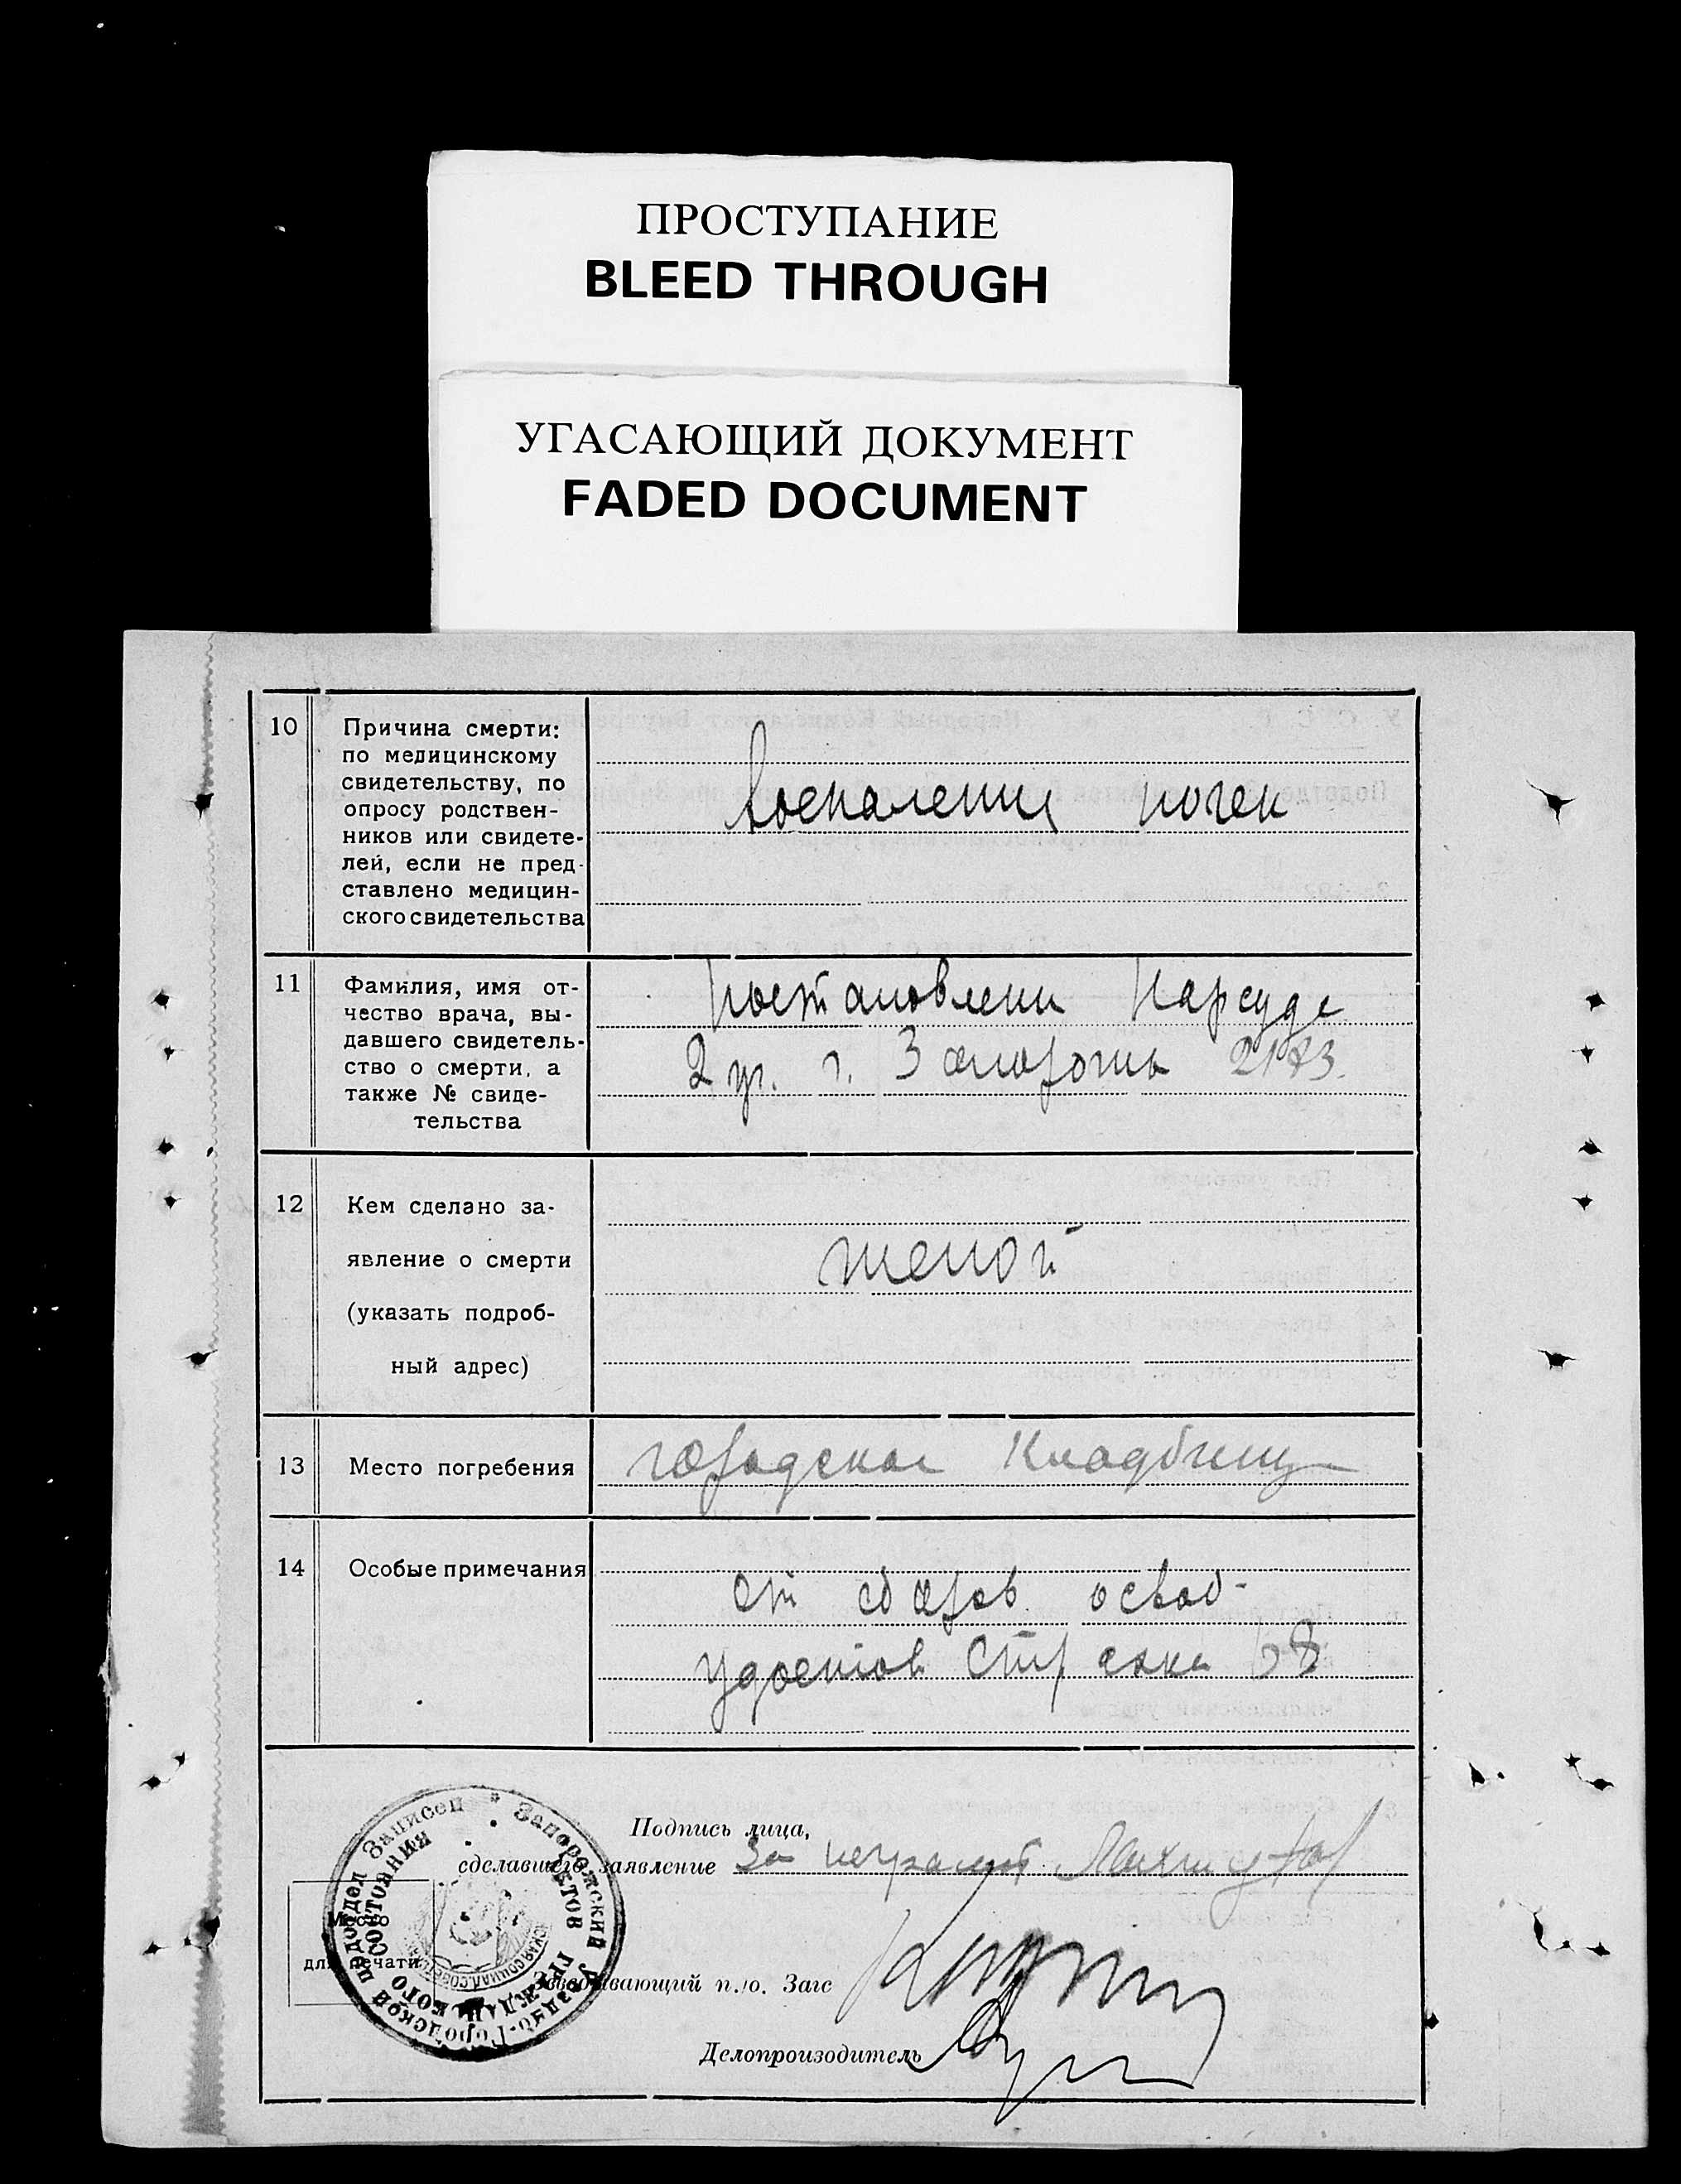 ПРОСТУПАНИЕ
BLEED THROUGH
УГАСАЮЩИЙ ДОКУМЕНТ
FADED DOCUMENT
10
Причина смерти:
по медицинскому
свидетельству, по
опросу родствен-
ников или свидете-
лей, если не пред-
ставлено медицин-
ского свидетельства
Воспаление почек
11
Фамилия, имя от-
чество врача, вы-
давшего свидетель-
ство о смерти, а
также № свиде-
тельства
Постановлени Нарсуда
2 уч. г. Запорожья
12
Кем сделано за-
явление о смерти
(указать подроб-
ный адрес)
женой
13
Место погребения
городское Кладбище
14
Особые примечания
от сборов освоб-
удостов
Подпись лица,
сделавшего заявление За неграмот
Место
для печати
Заведывающий п./о. Загс
Делопроизводитель
Запорожский Уездно-Городской подотдел Записей
Актов Гражданского Состояния